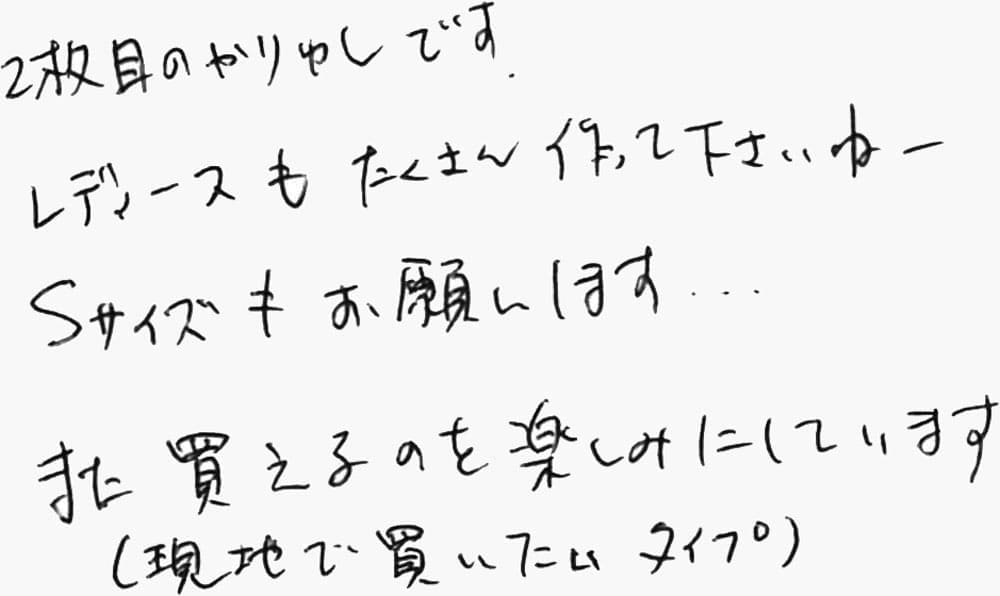 2枚目のかりゆしです.
レディースもたくさん作って下さいねー
Sサイズもお願いします...
また買えるのを楽しみにしています
(現地で買いたいタイプ)